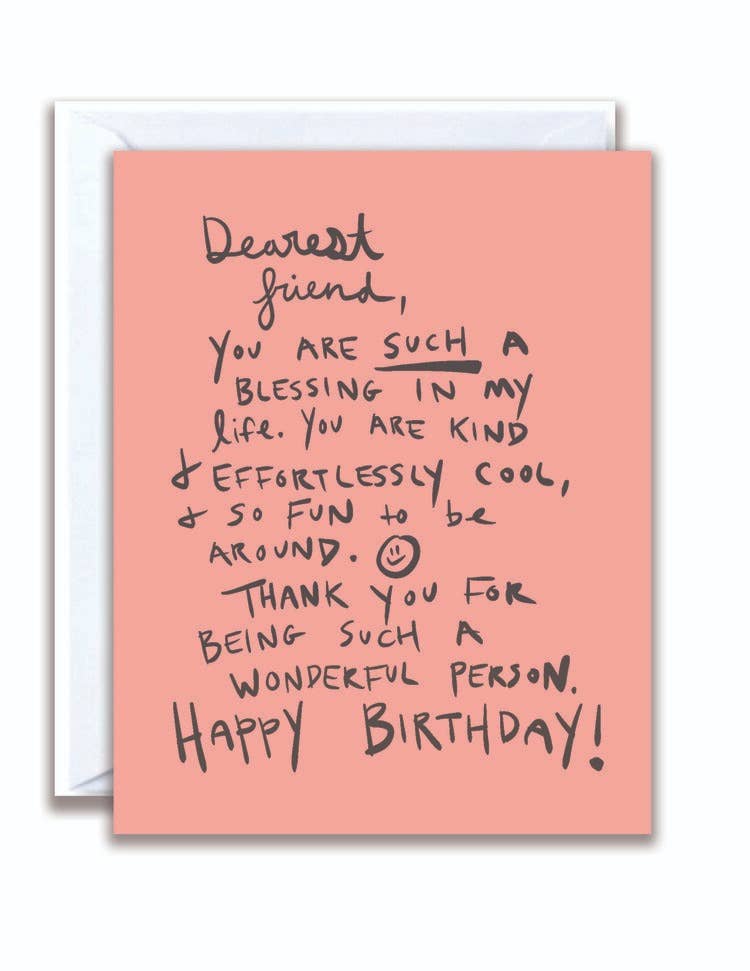 Dearest
friend,
You ARE SUCH A
BLESSING IN MY
life. You ARE KIND
& EFFORTLESSLY COOL,
& SO FUN to be
AROUND. ☺
THANK YOU FOR
BEING SUCH A
WONDERFUL PERSON.
HAPPY BIRTHDAY!